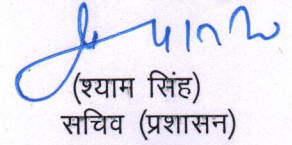 (श्याम सिंह)
सचिव (प्रशासन)